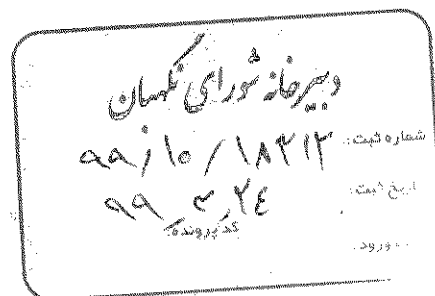 دبیرخانه شورای نگهبان
شماره ثبت: ۹۹/۱۰/۱۸۳۱۲
تاریخ ثبت: ۹۹،۳،۲۴
کد پرونده:
ورود